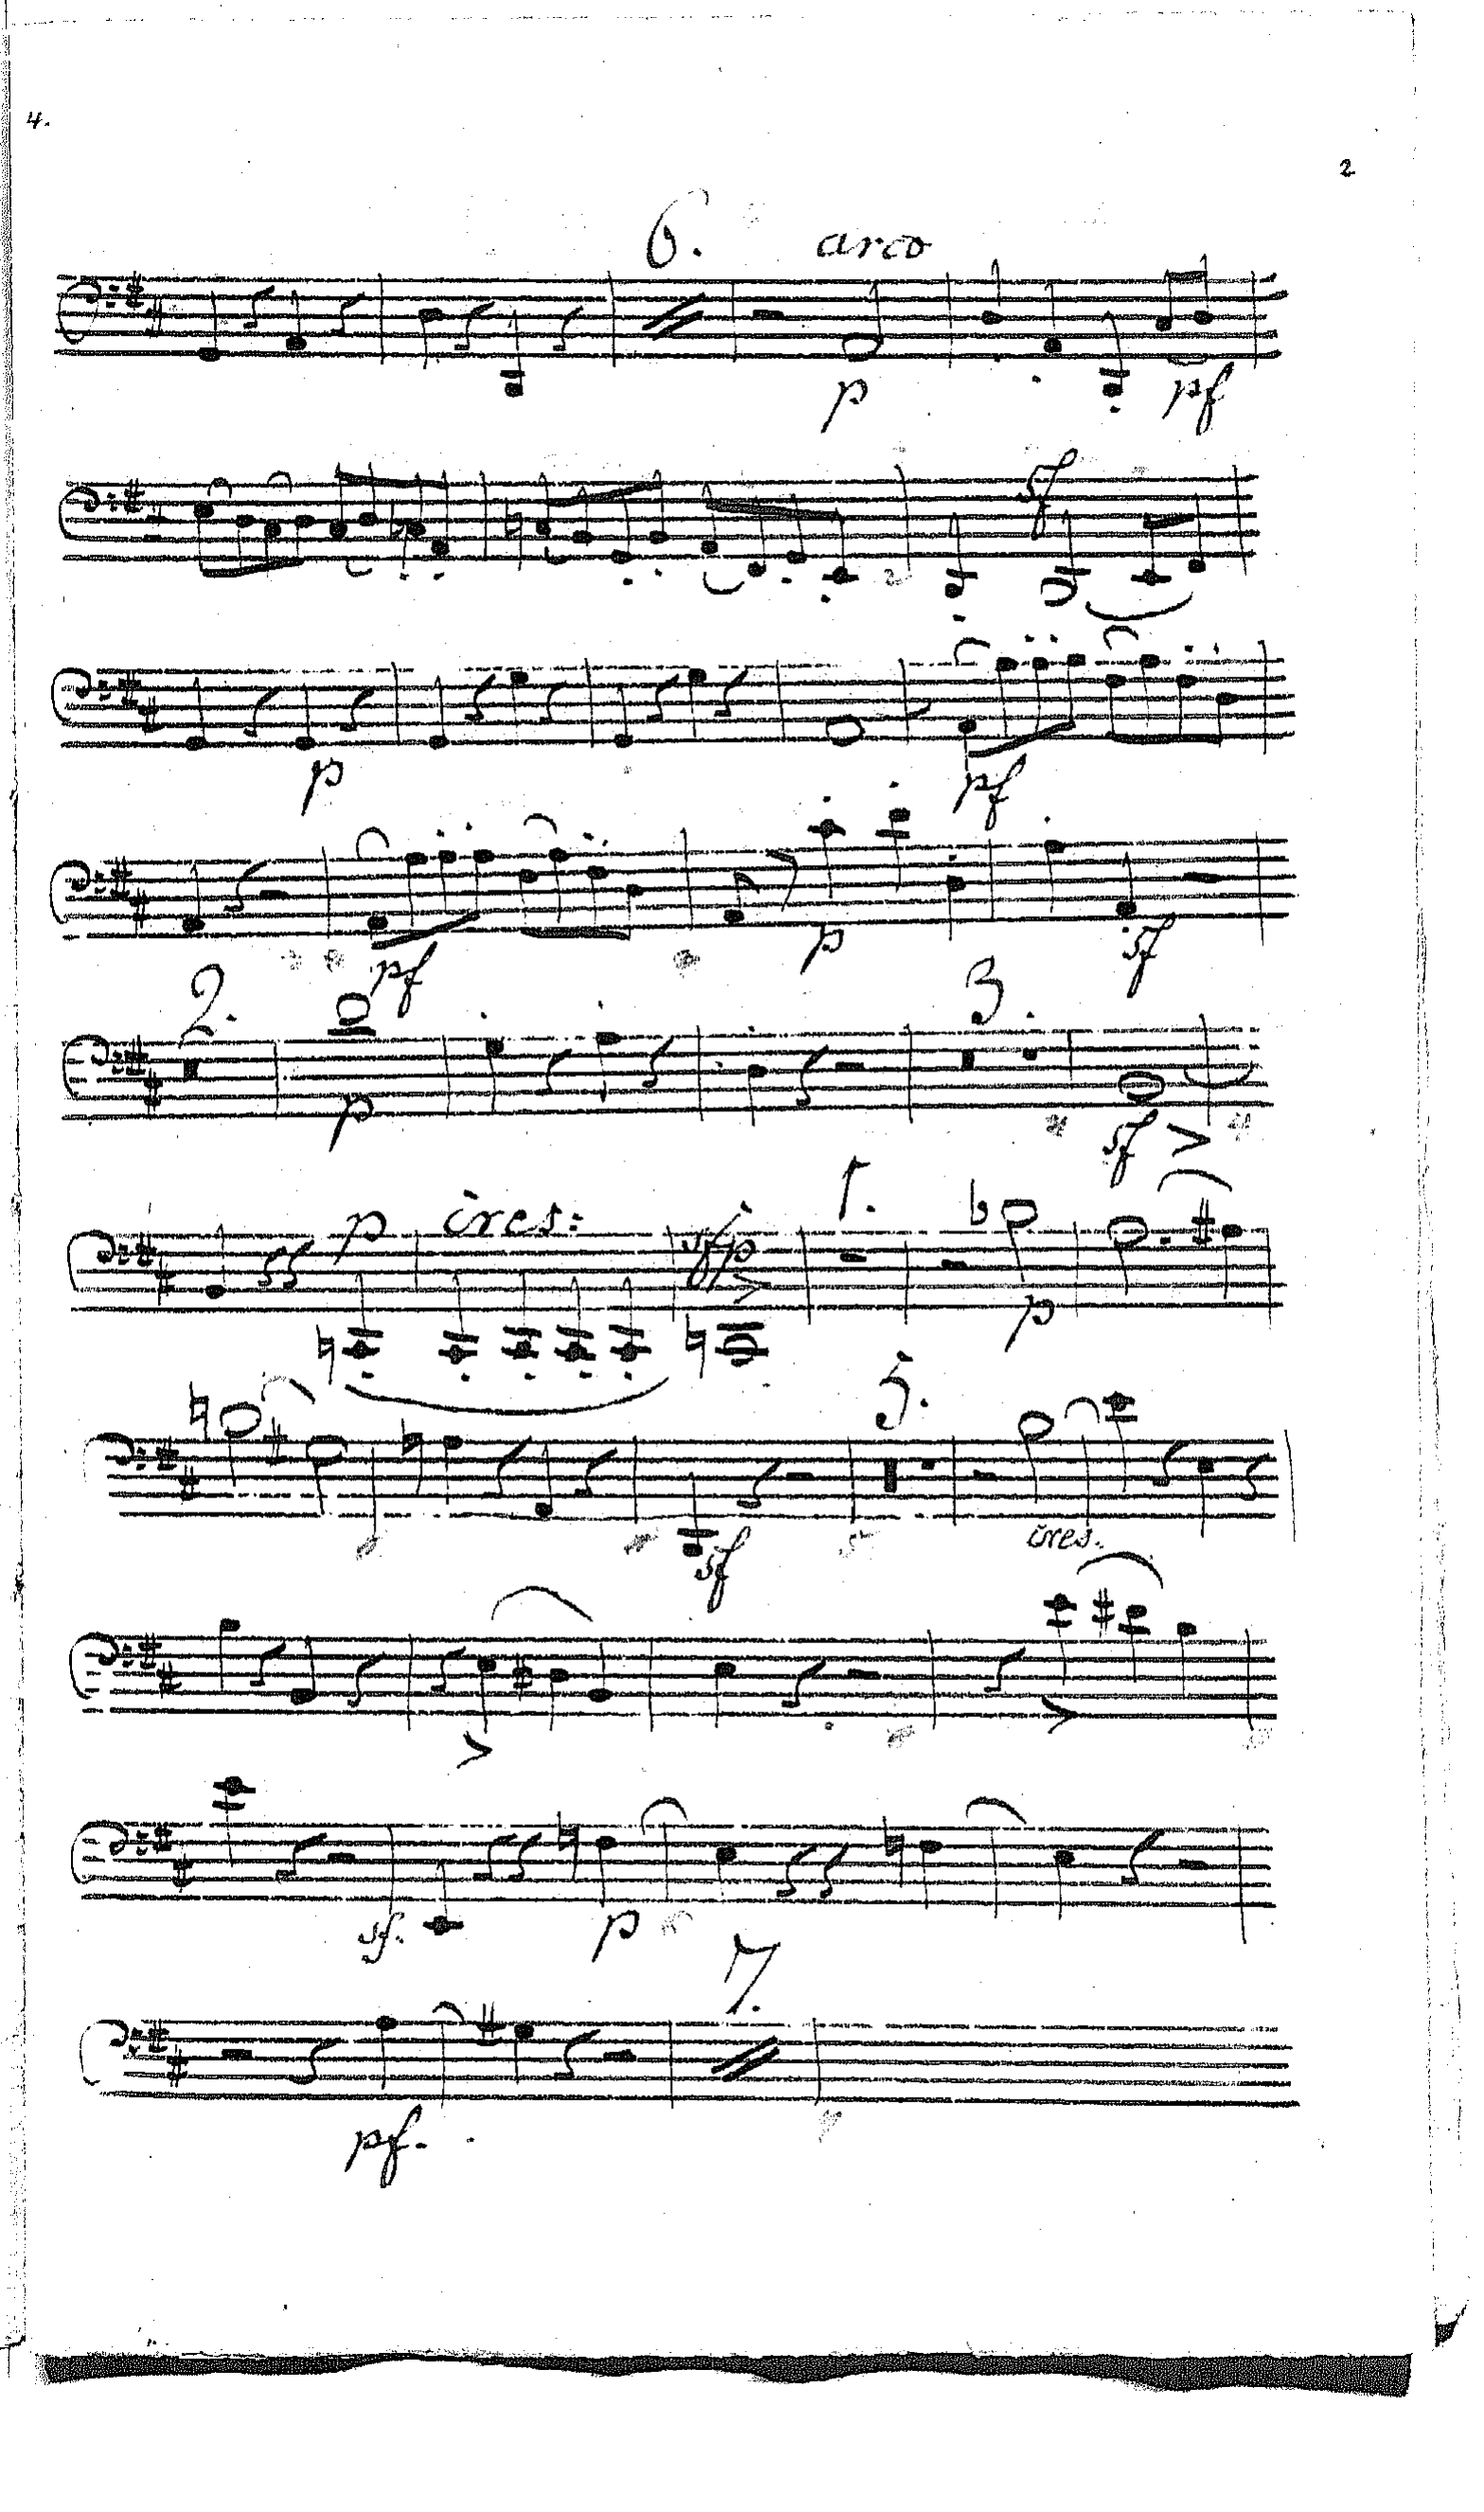 4.
2
6. arco
p pf
sf
p pf
pf p sf
2. 3.
p sf
p cres: sfp 1.
p
5.
sf cres.
sf. p
7.
pf.